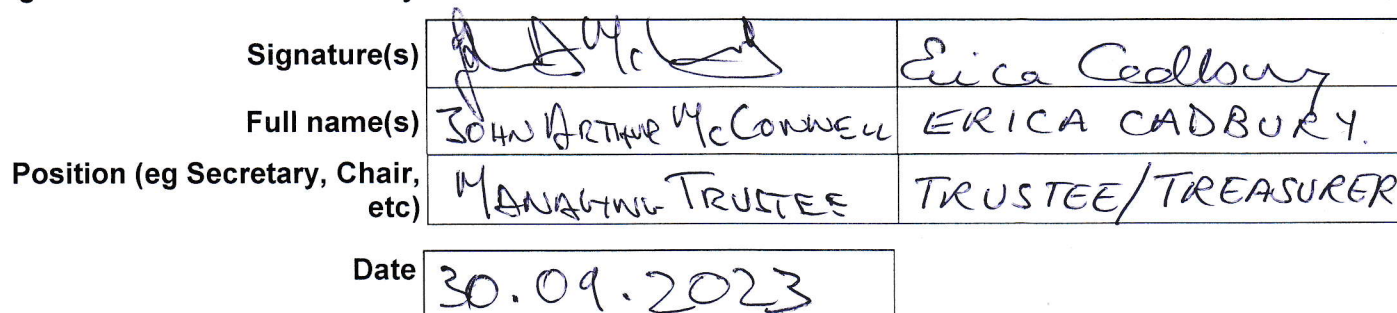 Signature(s) Erica Cadbury
Full name(s) JOHN ARTHUR McCONNELL ERICA CADBURY.
Position (eg Secretary, Chair, MANAGING TRUSTEE TRUSTEE/TREASURER
etc)
Date 30.09.2023